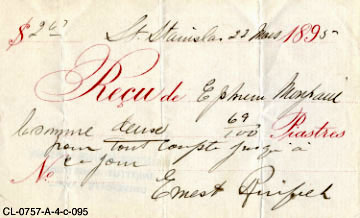 $ 2 69
St Stanislas 23 Mars 1895
Reçu de Ephrem
la somme deux 69/100 Piastres
pour tout compte jusqu'à
No ce jour
Ernest
CL-0757-A-4-c-095